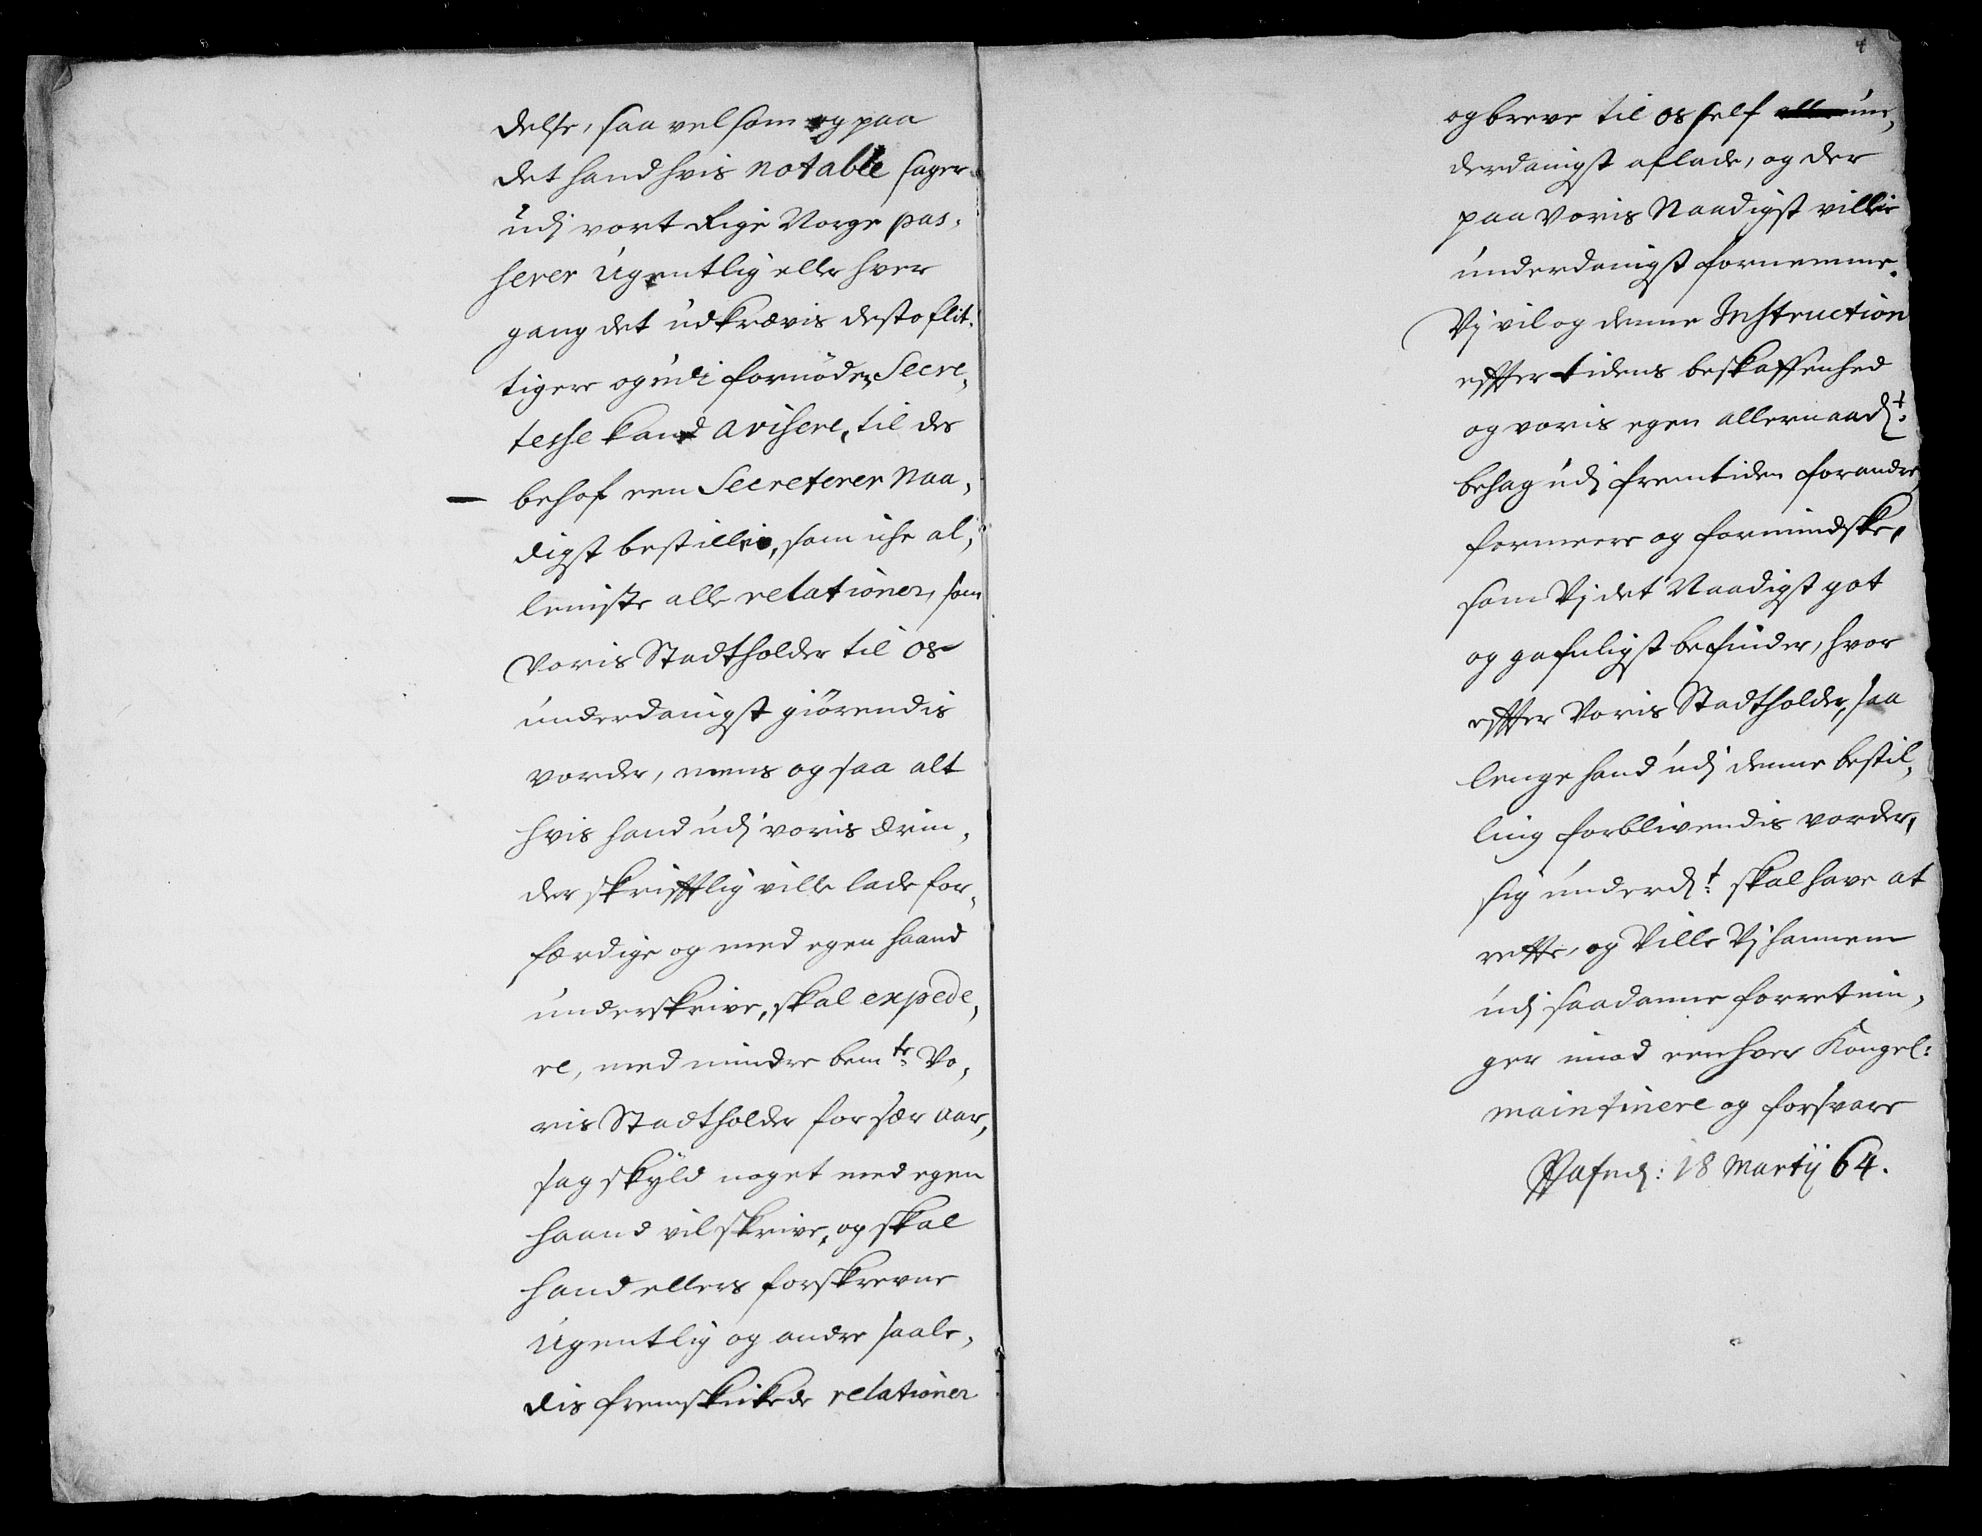 delse, saa vel som og paa
det hand hvis notable sager
udj vort Rige Norge pas,
serer Ugentlig eller hver
gang det udkrævis desto flit,
tigere og udi fornöden Secre,
tesse kand avisere, til des
behof een Secreterer Naa,
digst bestillis, som icke al,
leniste alle relationer, som
Voris Stadtholder til os
underdanigst giörendis
vorder, mens og saa alt
hvis hand udj voris ærin,
der skrifftlig ville lade for,
færdige og med egen haand
underskrive, skal expede,
re, med mindre bemte Vo,
ris Stadtholder for sær aar,
sag skyld noget med egen
haand vil skrive, og skal
hand ellers forskrevne
Ugentlig og andre saale,
dis fremskickede relationer
4
og breve til os self un,
derdanigst aflade, og der
paa Voris Naadigst villie
underdanigst fornemme.
Vj vil og denne Instruction
effter tidens beskaffenhed
og voris egen allernaadt:
behag udj fremtiden forandre,
formeere og formindske,
som Vj det Naadigst got
og gafnligst befinder, hvor
effter Voris Stadtholder, saa
lenge hand udj denne bestil,
ling forblivendis vorder,
sig underdt: skal have at
rette, og Ville Vj hannem
udj saadanne forretnin,
ger imod eenhver Kongel:
maintinere og forsvare
Hafnd: 18 Martij 64.